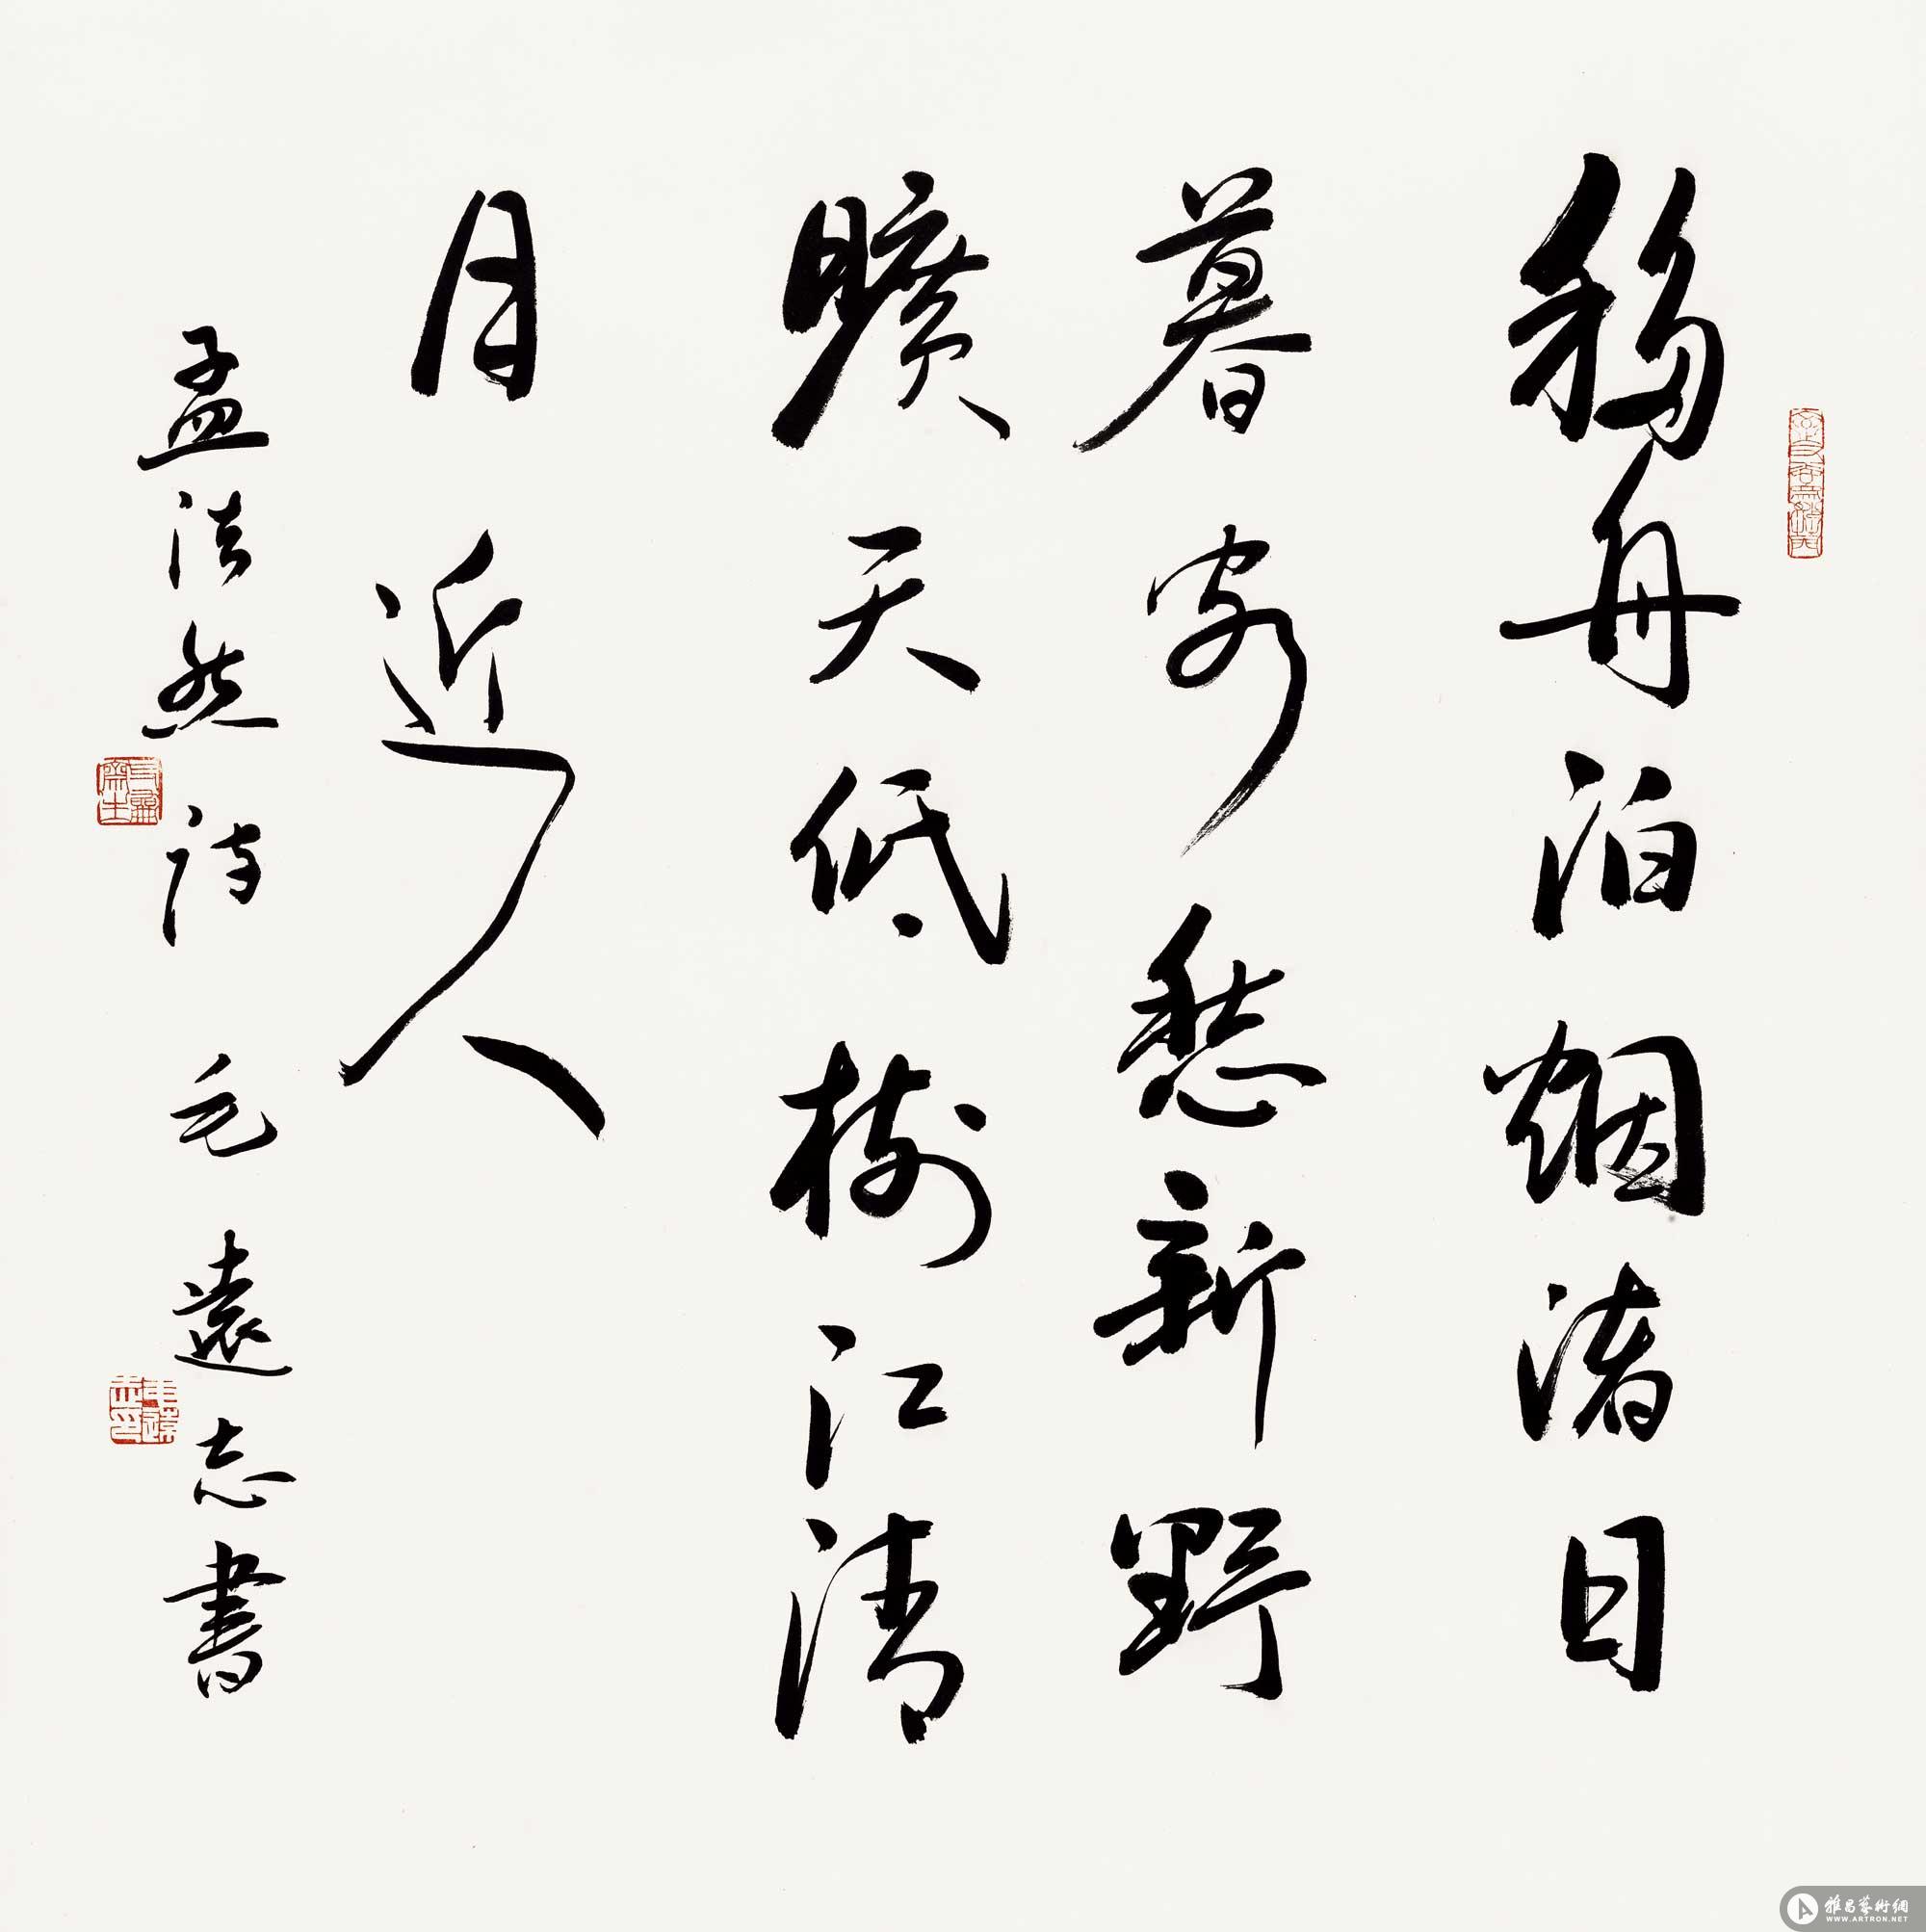 移舟泊烟渚日
暮客愁新野
曠天低樹江清
月近人
孟浩然詩 毛遠志書
雅昌藝術網
WWW.ARTRON.NET